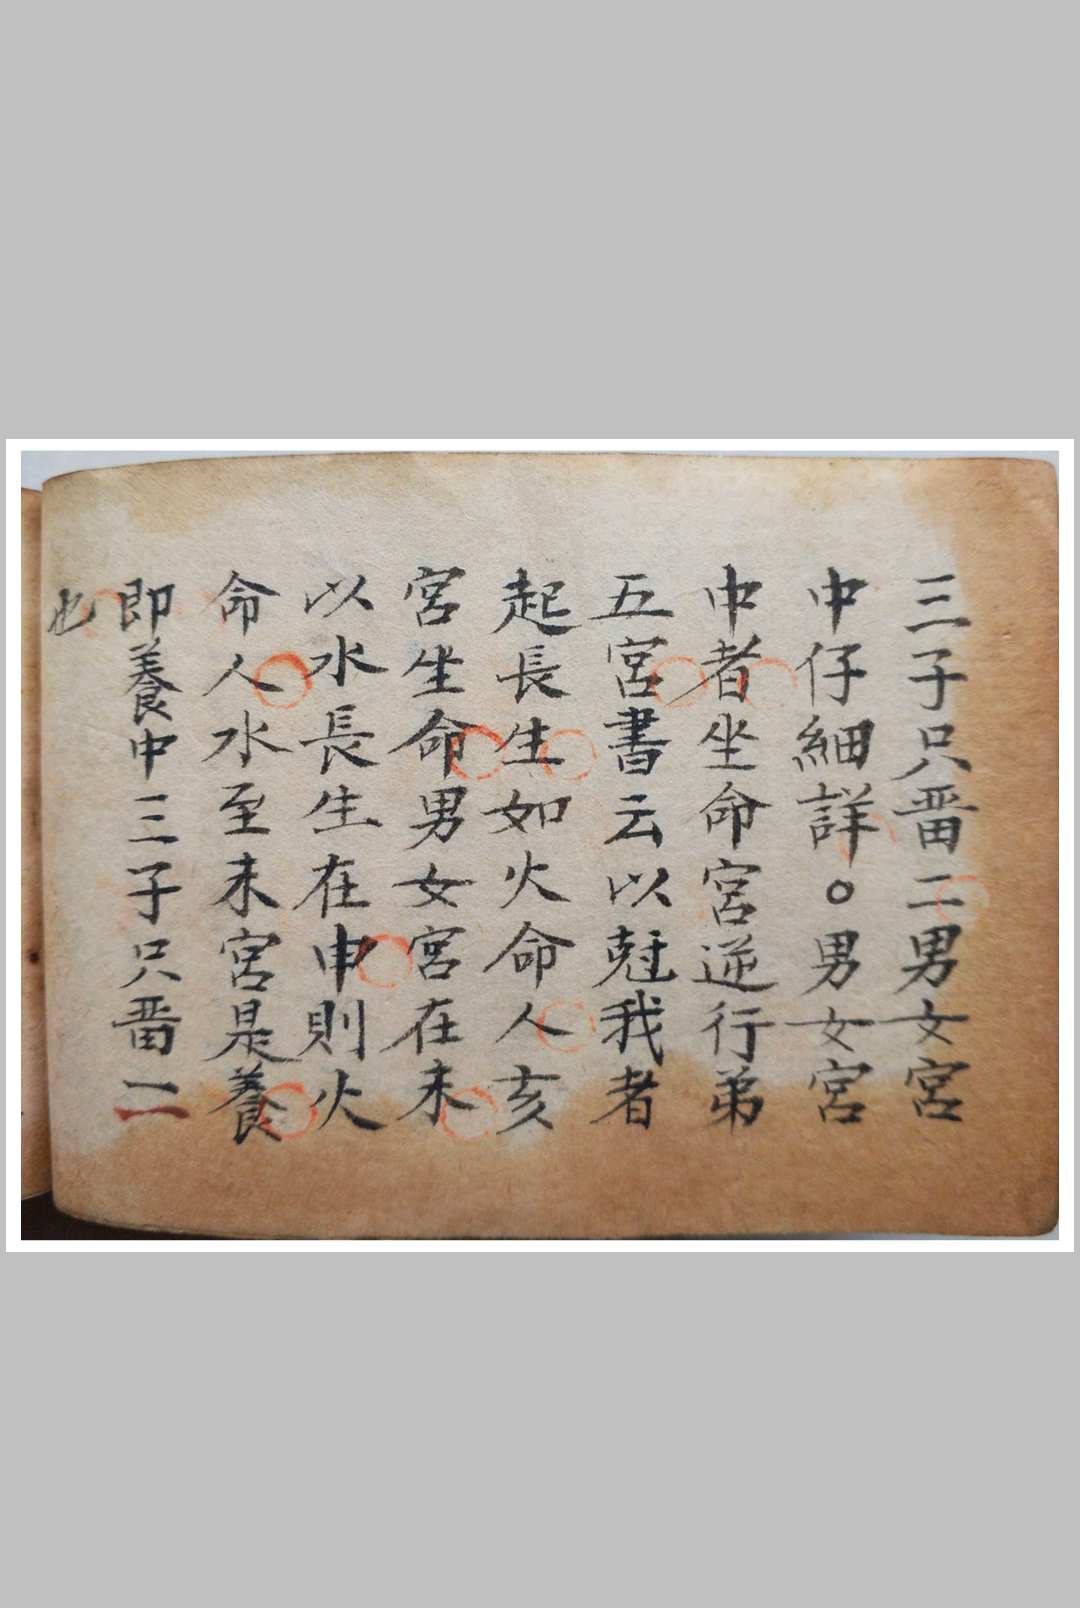 三子只畨二男女宮
中仔細詳○男女宮
中者坐命宮逆行弟
五宮書云以尅我者
起長生如火命人亥
宮坐命男女宮在未
以水長生在申則火
命人水至未宮是養
即養中三子只畨二
也